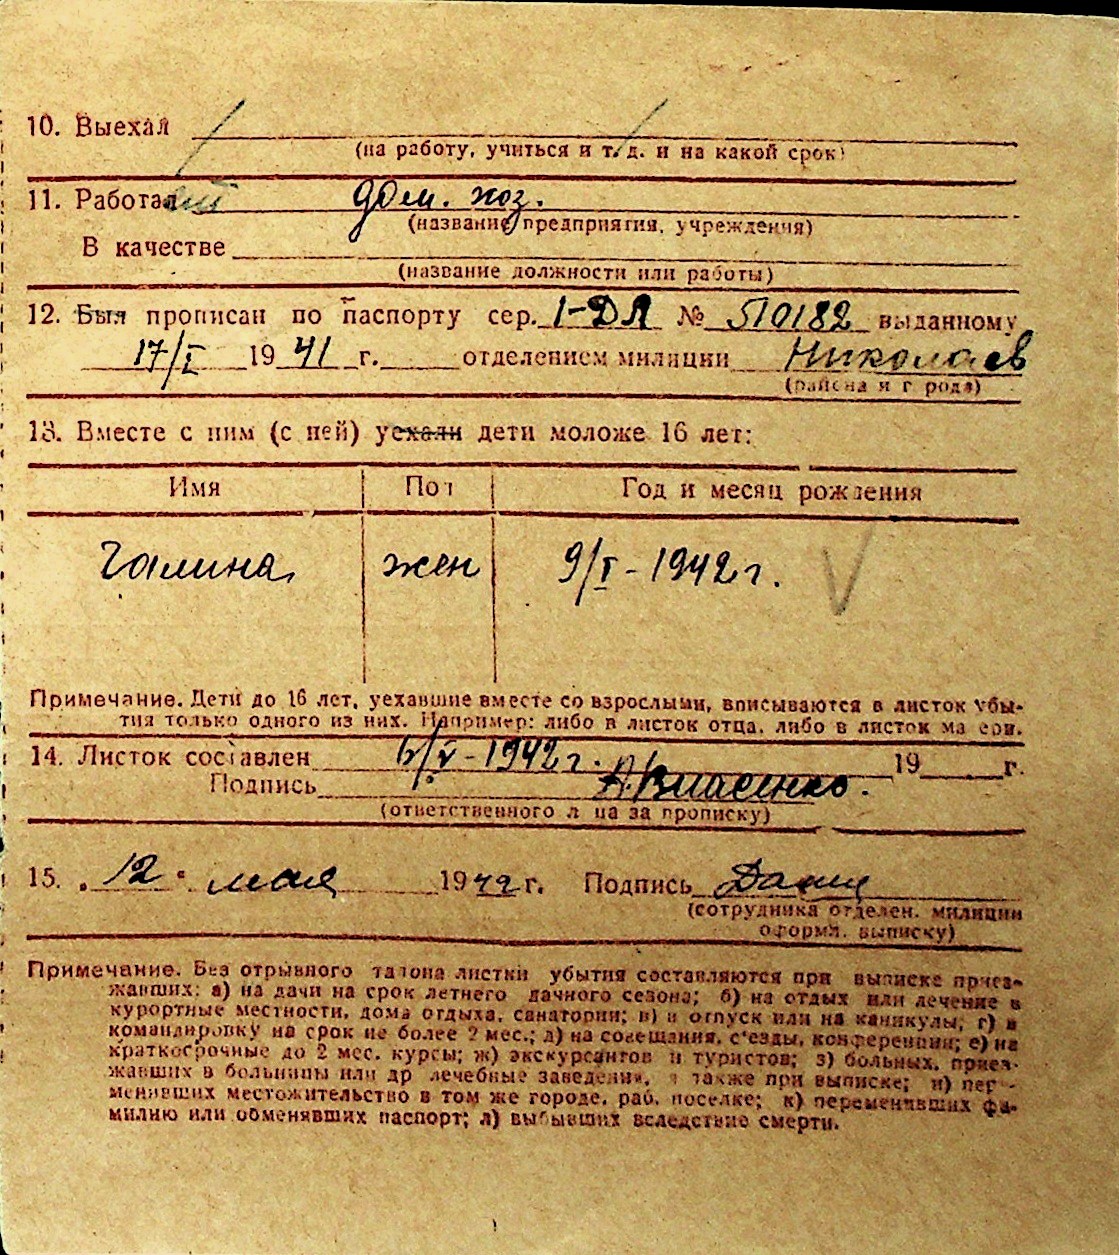 10. Выехал
(на работу, учиться и т. д. и на какой срок)
11. Работал дом. хоз.
(название предприятия, учреждения)
В качестве
(название должности или работы)
12. Был прописан по паспорту сер. 1-ДЛ № 510182 выданному
17/I 1941 г. отделением милиции Николаев
(района и города)
13. Вместе с ним (с ней) уехали дети моложе 16 лет:
Имя Пол Год и месяц рождения
Галина жен 9/I - 1942 г.
Примечание. Дети до 16 лет, уехавшие вместе со взрослыми, вписываются в листок убы-
тия только одного из них. Например: либо в листок отца, либо в листок матери.
14. Листок составлен 6/V - 1942 г. 19 г.
Подпись А. Власенко.
(ответственного лица за прописку)
15. „12“ мая 1942 г. Подпись
(сотрудника отделен. милиции
оформл. выписку)
Примечание. Без отрывного талона листки убытия составляются при выписке приез-
жавших: а) на дачи на срок летнего дачного сезона; б) на отдых или лечение в
курортные местности, дома отдыха, санатории; в) в отпуск или на каникулы; г) в
командировку на срок не более 2 мес.; д) на совещания, с'езды, конференции; е) на
краткосрочные до 2 мес. курсы; ж) экскурсантов и туристов; з) больных, приез-
жавших в больницы или др лечебные заведения, а также при выписке; и) пер -
менивших местожительство в том же городе, раб. поселке; к) переменивших фа-
милию или обменявших паспорт; л) выбывших вследствие смерти.